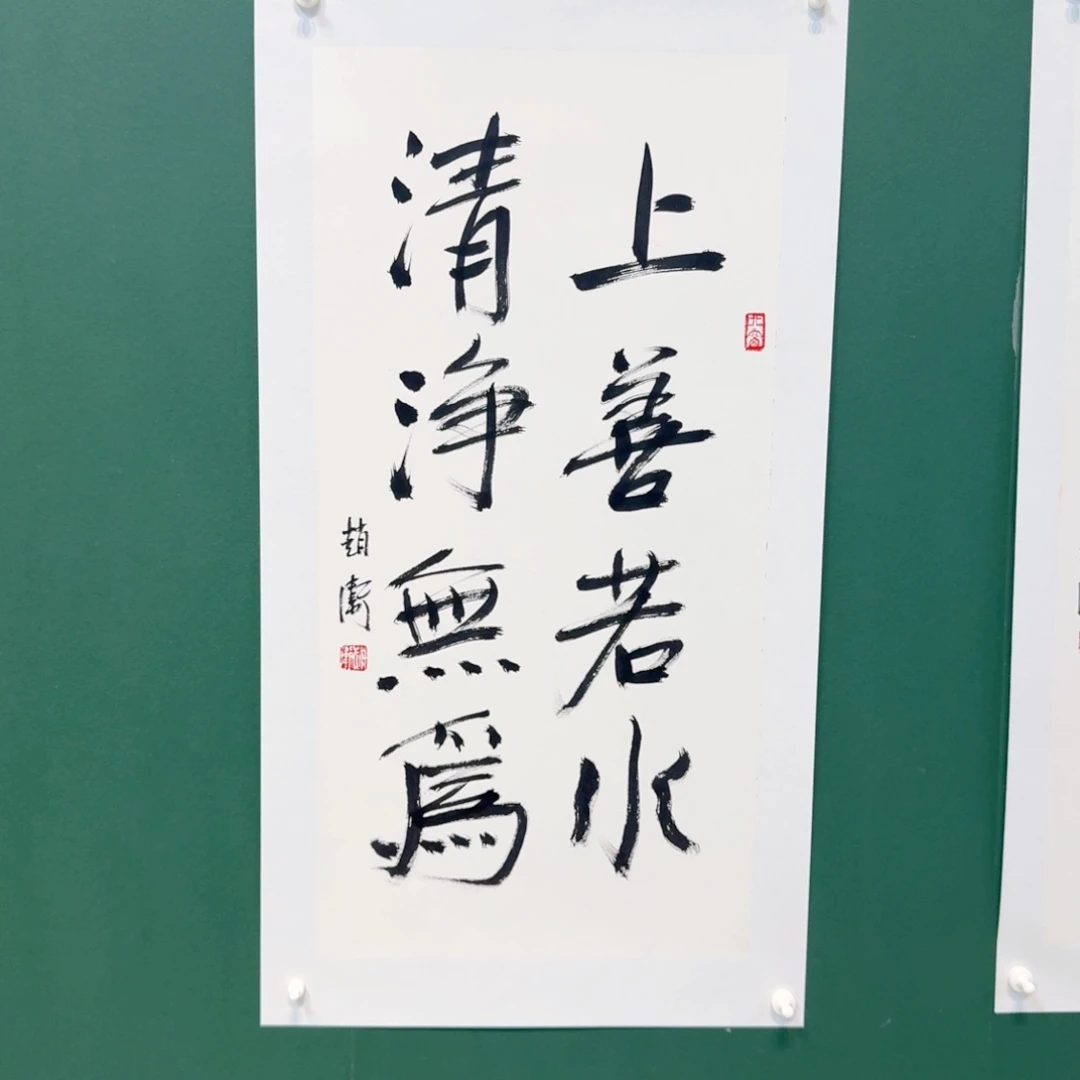 上善若水
清净無爲
趙衛